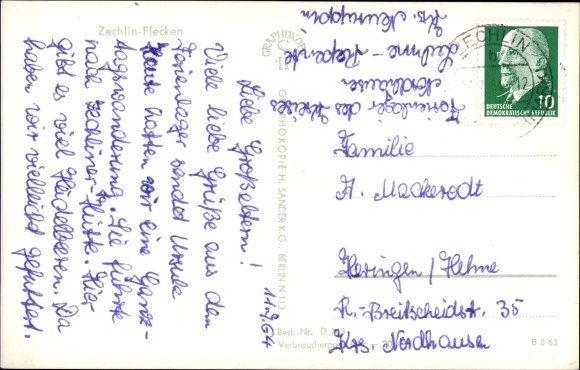 Zechlin-Flecken
11.7.64
Liebe Großeltern!
Viele liebe Grüße aus dem
Ferienlager sendet Ursula
Heute hatten wir eine Ganz-
tagswanderung. Sie führte
nach Zechliner-Hütte. Hier
gibt es viel Heidelbeeren. Da
haben wir vielleicht gefuttert.
GRAPHOKOPIE
GRAPHOKOPIE H. SANDER K.G., BERLIN N 113
Best.-Nr. D
Verbraucherpr
B 8 63
Ferienlager des Kreises
Nordhausen
Luhme - Repente
Krs. Neuruppin
ECHLIN
DEUTSCHE
DEMOKRATISCHE REPUBLIK
10
Familie
A. Mackerodt
Heringen / Helme
R.-Breitscheidstr. 35
Krs. Nordhausen